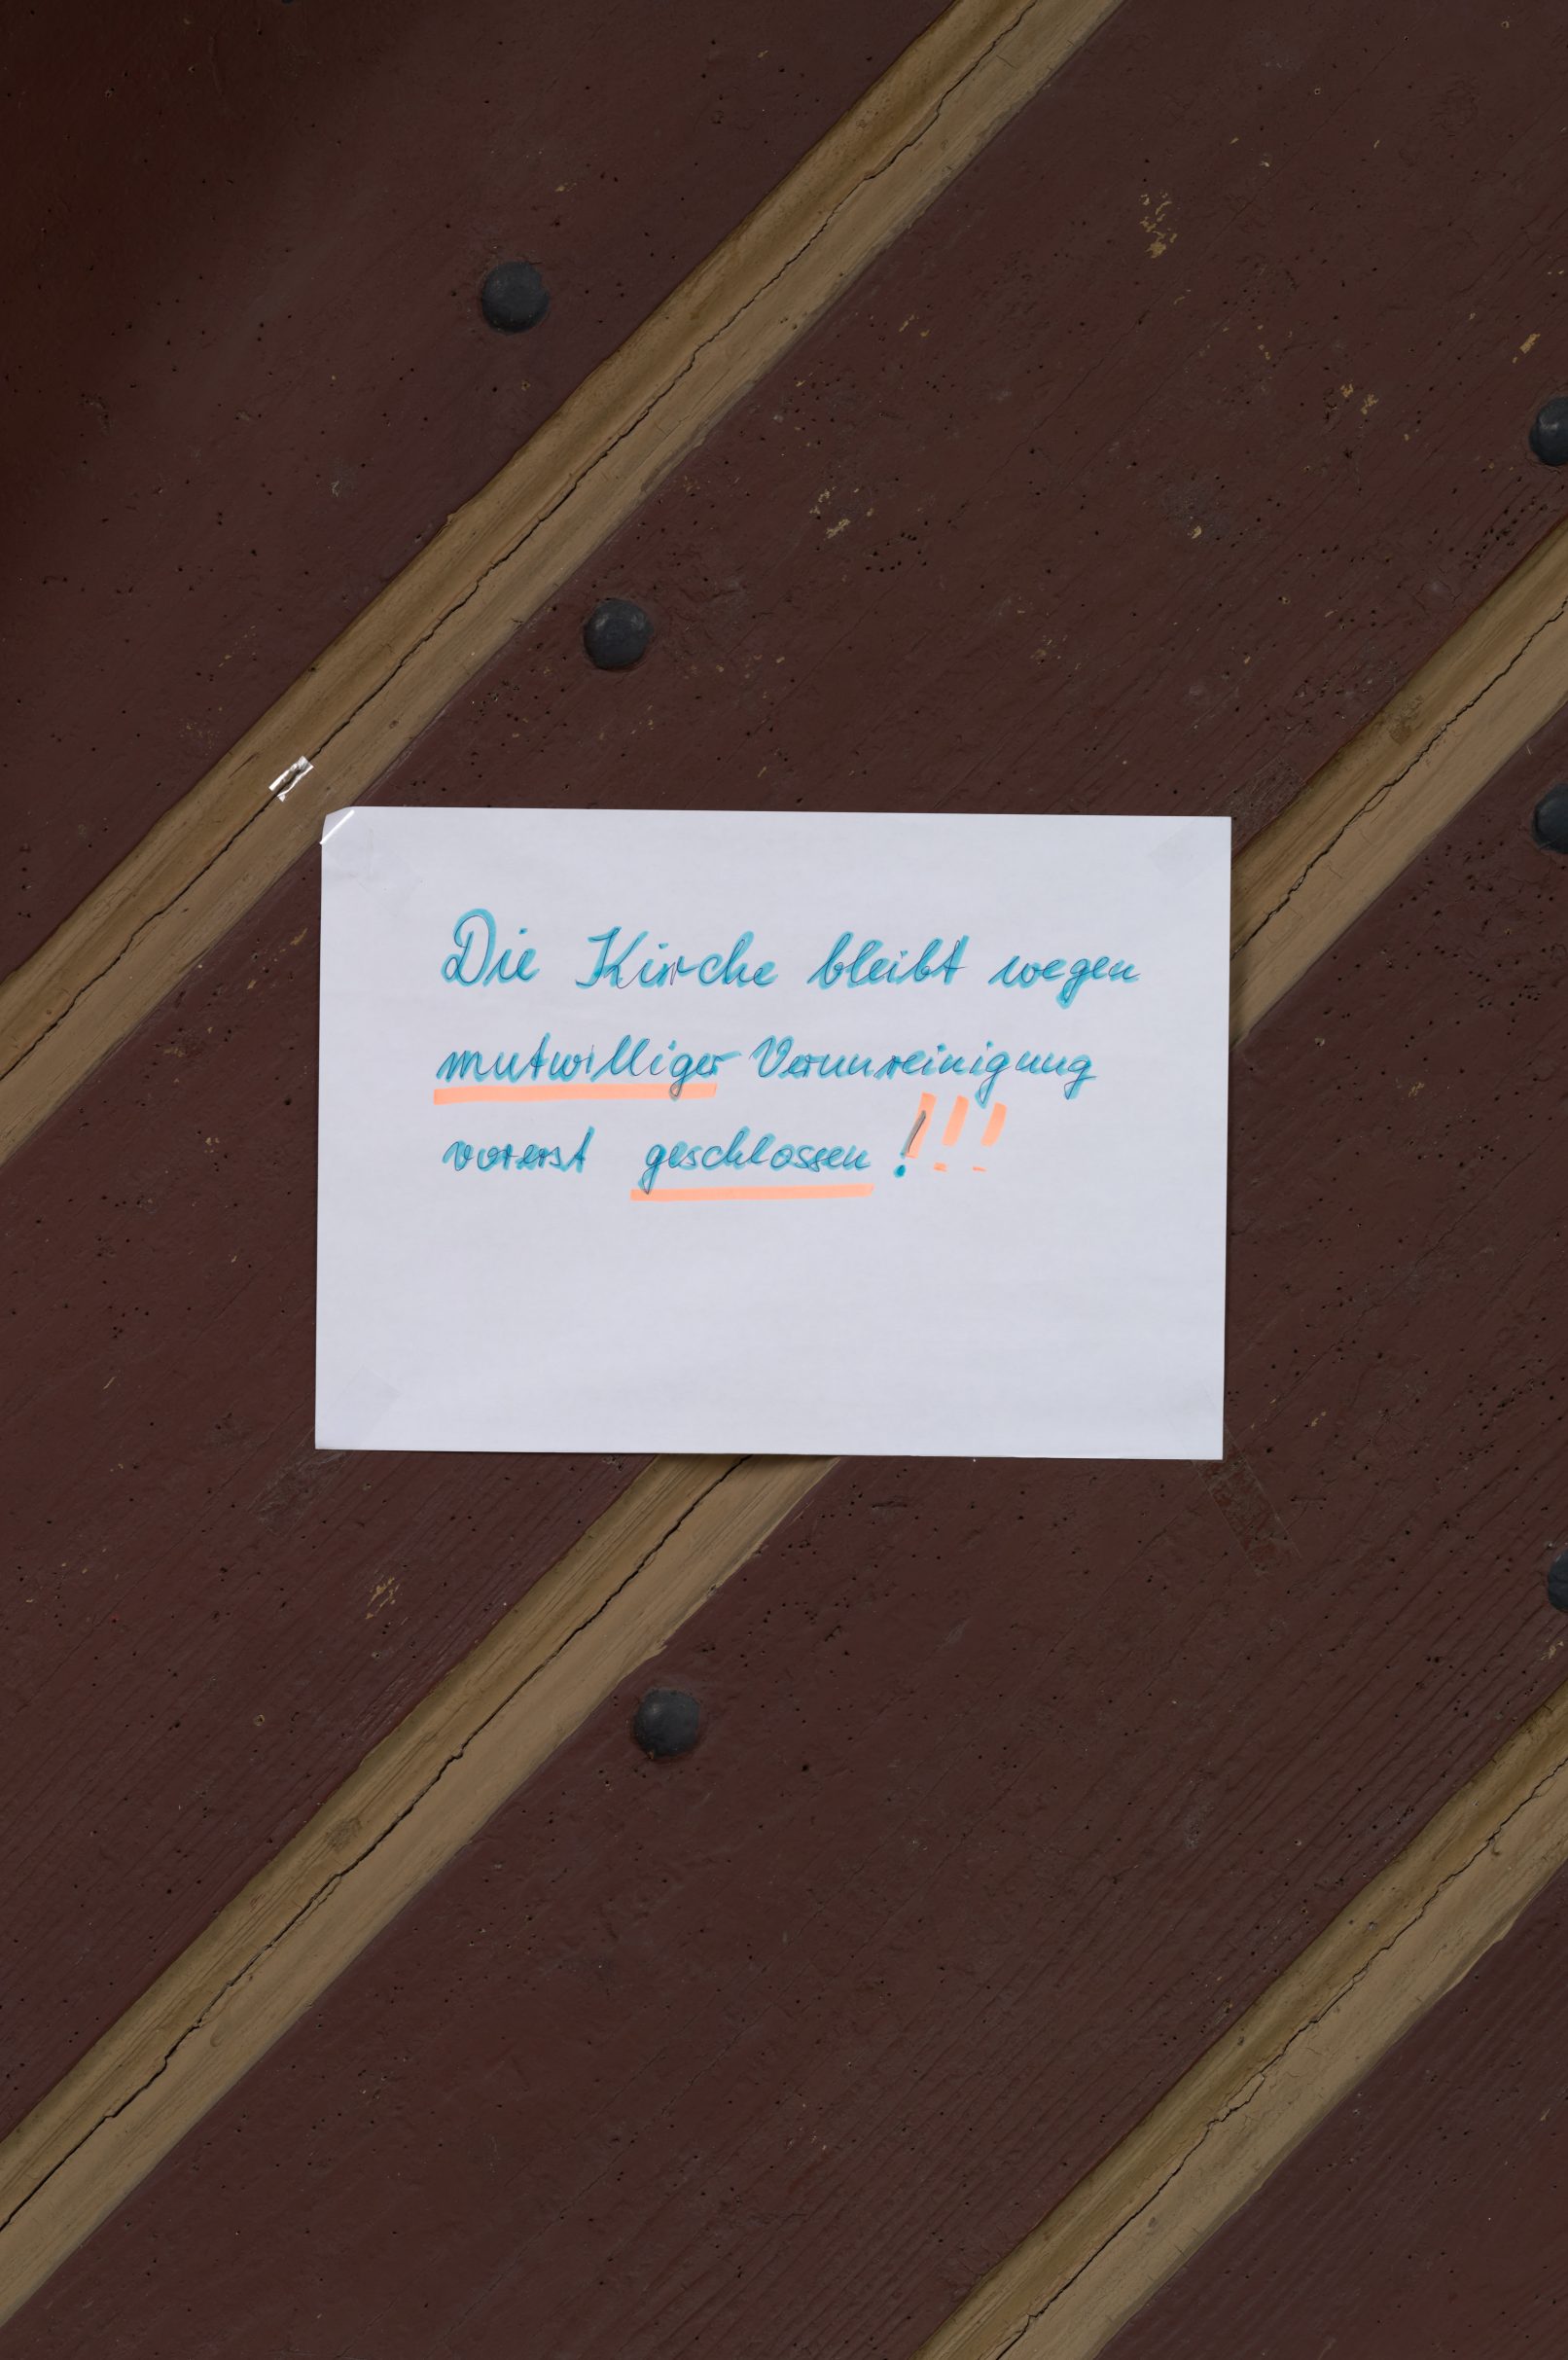 Die Kirche bleibt wegen
mutwilliger Verunreinigung
vorerst geschlossen !!!!